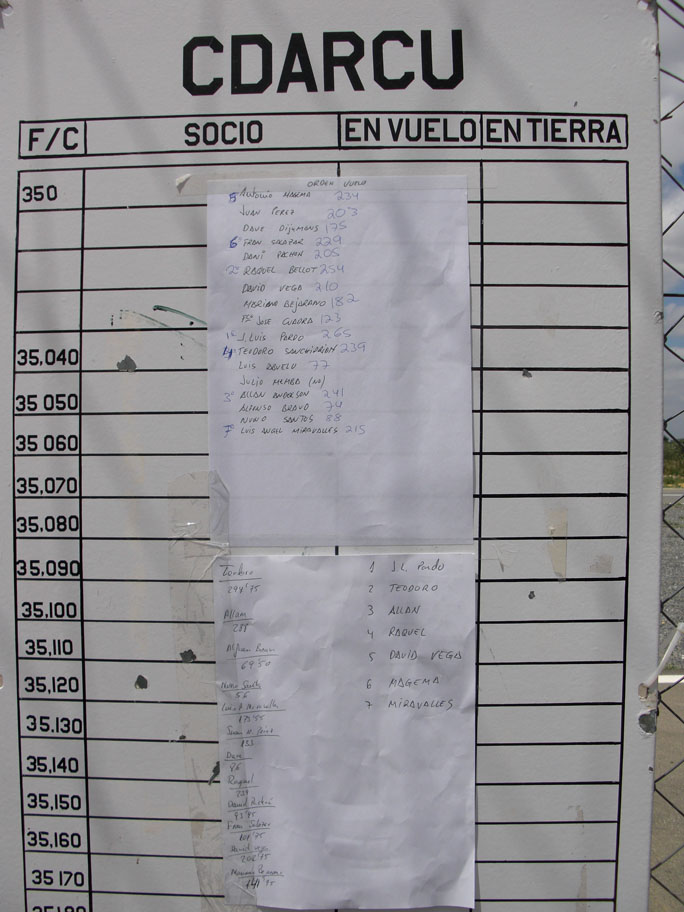 CDARCU
F/C SOCIO EN VUELO EN TIERRA
350
35,040
35 050
35 060
35,070
35.080
35,090
35,100
35,110
35,120
35.130
35,140
35,150
35,160
35 170
ORDEN VUELO
5º ANTONIO MAGEMA 234
JUAN PEREZ 203
DAVE 175
6º FRAN SALAZAR 229
DANI PACHON 205
2º RAQUEL BELLOT 254
DAVID VEGA 210
MARIANO BEJARANO 182
Fsº JOSE GUADRA 123
1º J. LUIS PARDO 265
4º TEODORO SANCHIDRIAN 239
LUIS 77
JULIO MEMBA (NO)
3º ALLAN ANDERSON 241
ALFONSO BRAVO 74
NUNO SANTOS 88
7º LUIS ANGEL MIRAVALLES 215
Teodoro
294'75
Allan
288
Alfonso Bravo
69'50
Nuno Santos
56
Luis A. Miravalles
173'55
133
Dave
86
Raquel
David
93'75
Fran Salazar
David Vega
202'75
141'75
1 J.L. Pardo
2 TEODORO
3 ALLAN
4 RAQUEL
5 DAVID VEGA
6 MAGEMA
7 MIRAVALLES